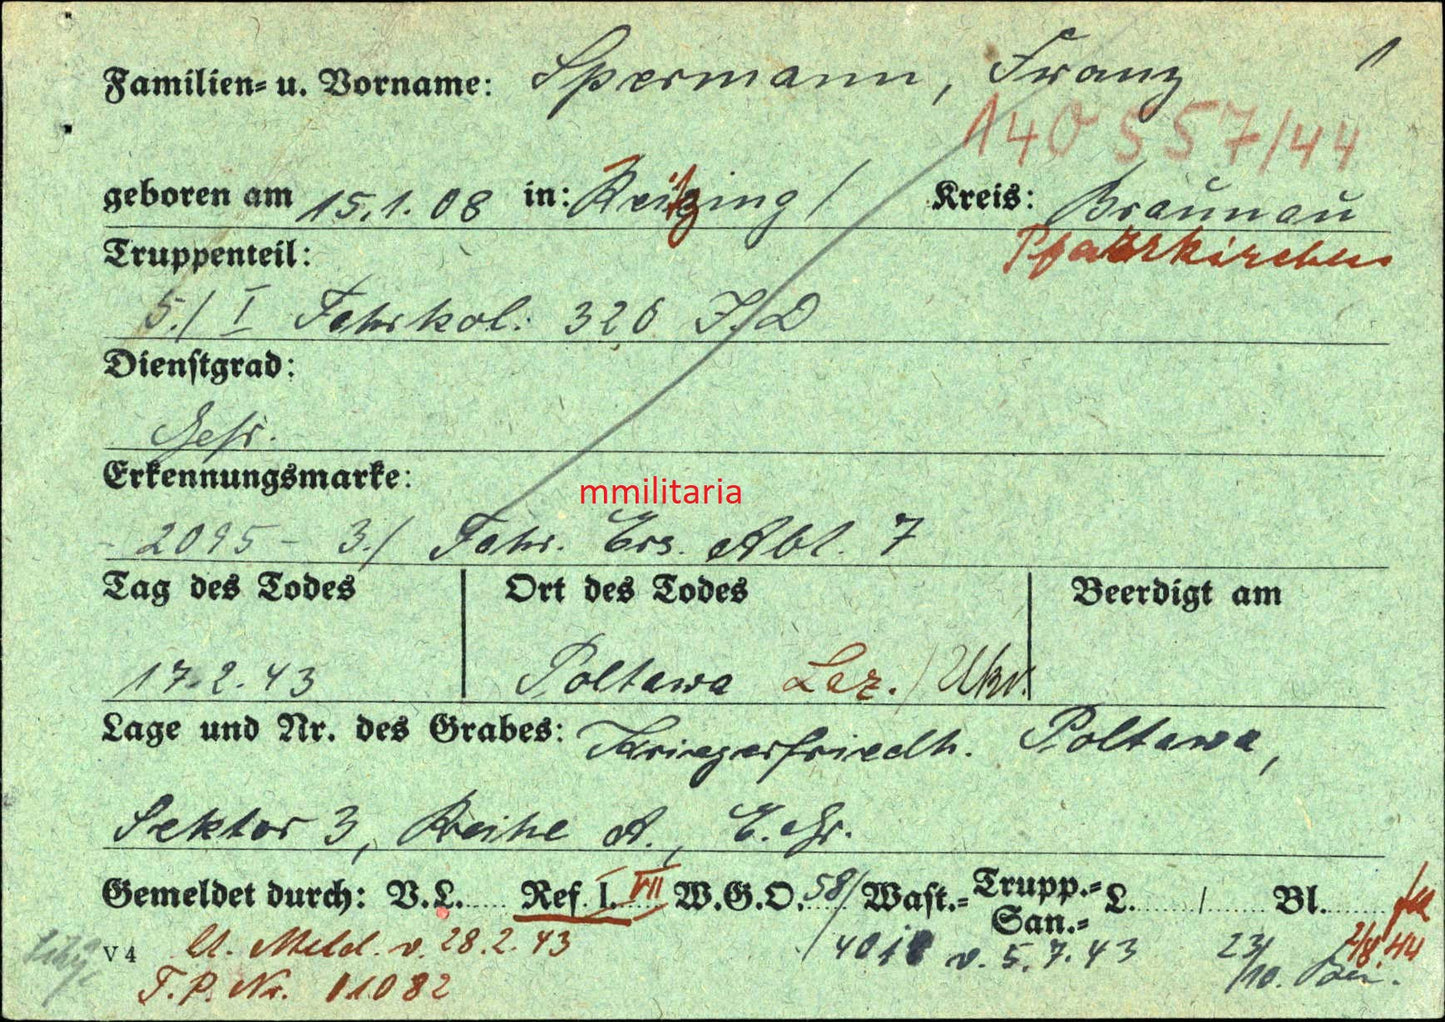 Familien- u. Vorname: Spermann, Franz 1
140 557/44
geboren am 15.1.08 in: Reitzing / Kreis: Braunau
Pfarrkirchen
Truppenteil:
5./ I Fahrkol. 320 I.D
Dienstgrad:
Gefr.
Erkennungsmarke:
- 2095 - 3./ Fahr. Ers. Abt. 7
mmilitaria
Tag des Todes Ort des Todes Beerdigt am
17.2.43 Poltawa Laz. / Ukr.
Lage und Nr. des Grabes: Kriegerfriedh. Poltawa,
Sektor 3, Reihe A., E.Gr.
Gemeldet durch: V.L. Ref. I. VII W.G.O. 58/ Wast.= Trupp.= San.= L. / Bl.
V 4 lt. Meld. v. 28.2.43 v. 5.7.43 23/10. 2/8.44
F.P. Nr. 11082